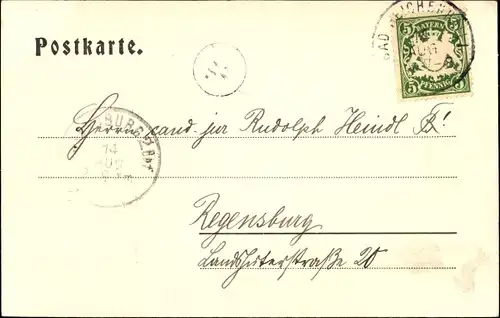 Postkarte.
BAD REICHENH
BAYERN
5 5
5 PFENNIG 5
BURG 2.
14
AUG
Herrn cand. jur Rudolph Heindl
Regensburg
Landshuterstraße 20